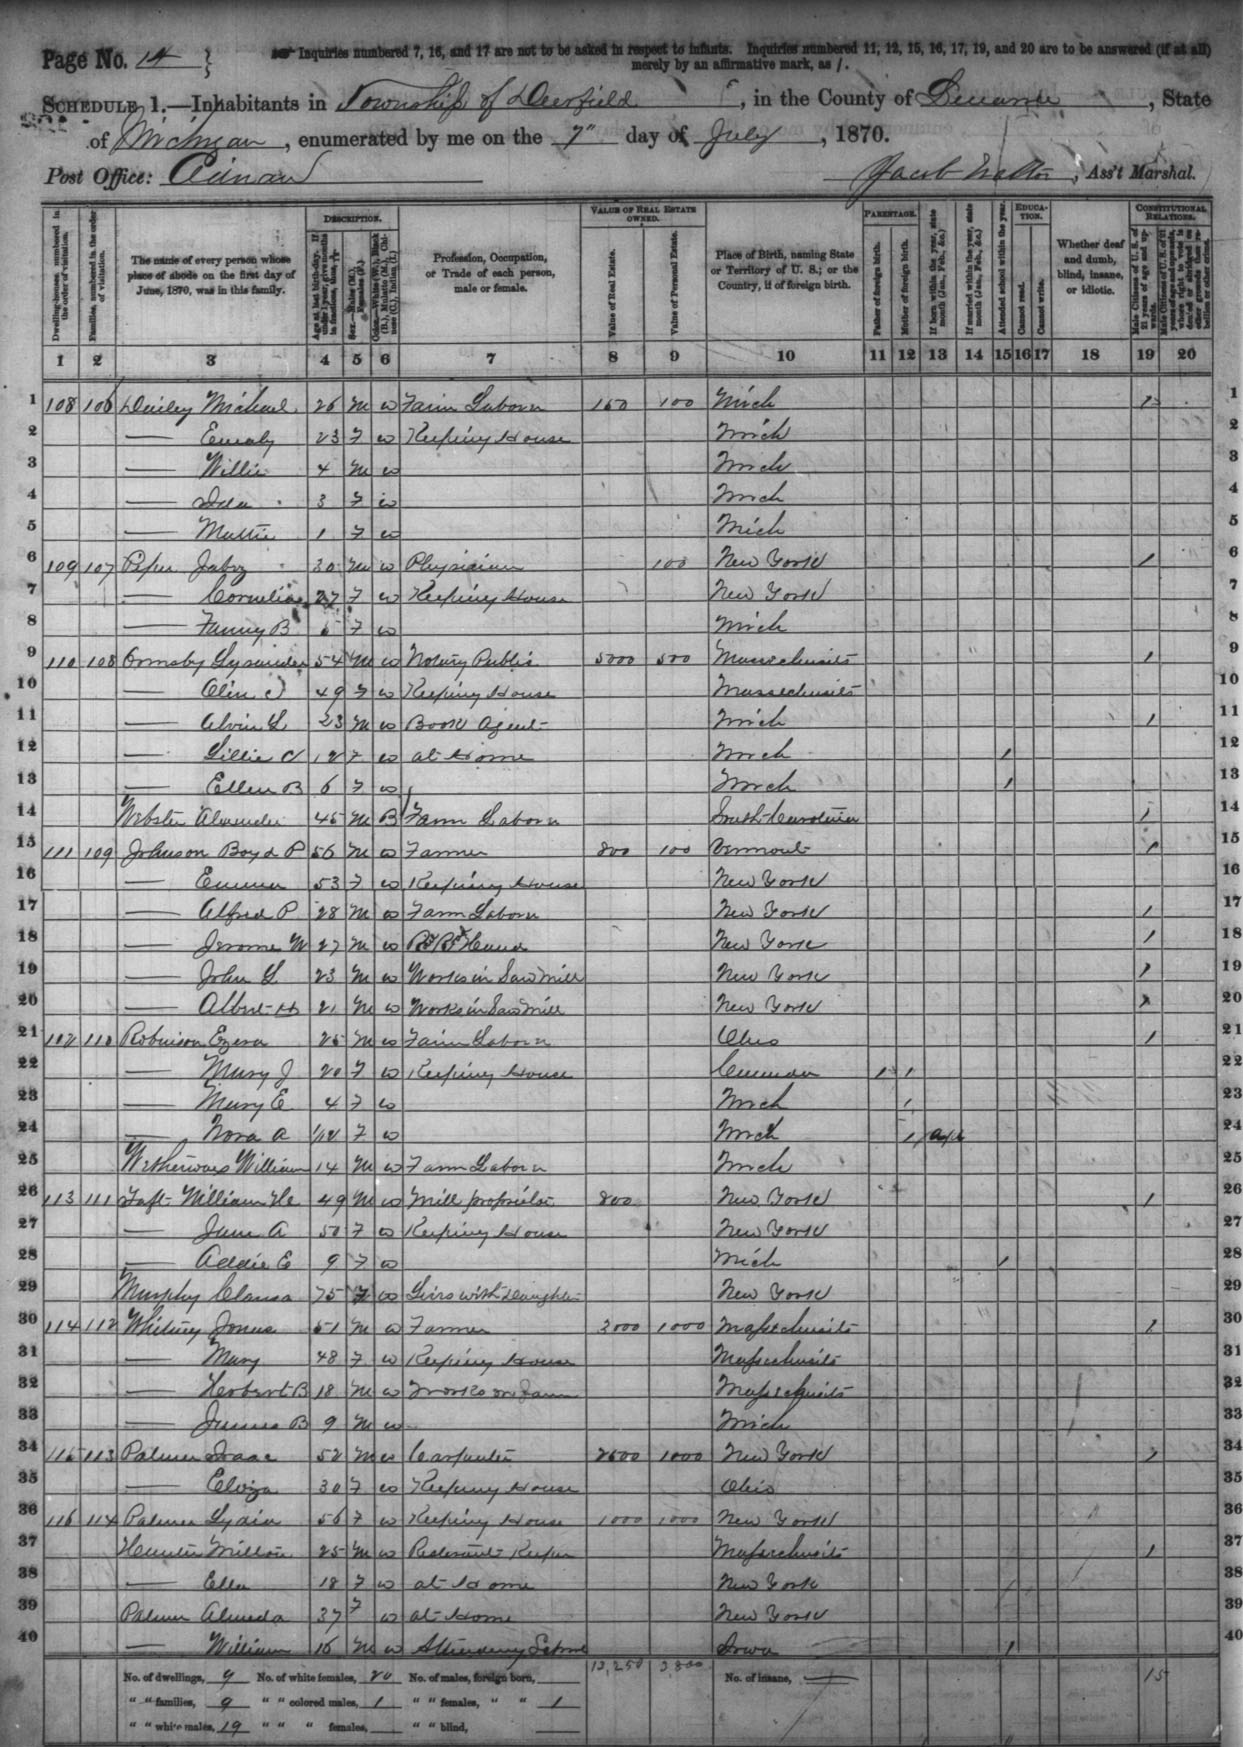 Page No. 14 } Inquiries numbered 7, 16, and 17 are not to be asked in respect to infants. Inquiries numbered 11, 12, 15, 16, 17, 19, and 20 are to be answered (if at all)
merely by an affirmative mark, as /.
SCHEDULE 1.—Inhabitants in Township of Deerfield, in the County of Lenawee, State
of Michigan, enumerated by me on the 7" day of July, 1870.
Post Office: Jacob Walton, Ass't Marshal.
Dwelling-houses, numbered in the order of visitation.
Families, numbered in the order of visitation.
The name of every person whose place of abode on the first day of June, 1870, was in this family.
DESCRIPTION.
Age at last birth-day. If under 1 year, give months in fractions, thus, 3/12.
Sex.—Males (M.), Females (F.).
Color.—White (W.), Black (B.), Mulatto (M.), Chinese (C.), Indian (I.)
Profession, Occupation, or Trade of each person, male or female.
VALUE OF REAL ESTATE OWNED.
Value of Real Estate.
Value of Personal Estate.
Place of Birth, naming State or Territory of U. S.; or the Country, if of foreign birth.
PARENTAGE.
Father of foreign birth.
Mother of foreign birth.
If born within the year, state month (Jan., Feb., &c.)
If married within the year, state month (Jan., Feb., &c.)
EDUCATION.
Attended school within the year.
Cannot read.
Cannot write.
Whether deaf and dumb, blind, insane, or idiotic.
CONSTITUTIONAL RELATIONS.
Male Citizens of U. S. of 21 years of age and upwards.
1 2 3 4 5 6 7 8 9 10 11 12 13 14 15 16 17 18 19 20
1 108 106 Michael 26 M W Farm Laborer 150 100 Mich 1
2 — Emaly 23 F W Keeping House Mich 2
3 — Willie 4 M W Mich 3
4 — Ida 3 F W Mich 4
5 — Mattie 1 F W Mich 5
6 109 107 Piper Jabez 30 M W Physician 100 New York 1 6
7 — Cornelia 27 F W Keeping House New York 7
8 — Fanny B F W Mich 8
9 110 108 Ormsby Lysander 54 M W Notary Public 5000 500 Massachusets 1 9
10 — 49 F W Keeping House Massachusets 10
11 — Alvin L 23 M W Book Agent Mich 1 11
12 — Lillie 12 F W at Home Mich 1 12
13 — Ellen B 6 F W Mich 1 13
14 Webster Alexander 45 M B Farm Laborer South Carolina 1 14
15 111 109 Johnson Boyd P 56 M W Farmer 800 100 Vermont 1 15
16 — Emma 53 F W Keeping House New York 16
17 — Alfred P 28 M W Farm Laborer New York 1 17
18 — Jerome W 27 M W R R Hand New York 1 18
19 — John L 23 M W Works in Saw Mill New York 1 19
20 — Albert H 21 M W Works in Saw Mill New York 1 20
21 112 110 Robinson Ezera 25 M W Farm Laborer Ohio 1 21
22 — Mary J 20 F W Keeping House Canada 1 1 22
23 — Mary E 4 F W Mich 1 23
24 — Nora A 1/12 F W Mich 1 24
25 William 14 M W Farm Laborer Mich 25
26 113 111 Taft William He 49 M W Mill proprietor 800 New York 1 26
27 — Jane A 50 F W Keeping House New York 27
28 — Addie E 9 F W Mich 1 28
29 Murphy Clarisa 75 F W Lives with Daughter New York 29
30 114 112 Whitney Jonas 51 M W Farmer 3000 1000 Massachusits 1 30
31 — Mary 48 F W Keeping House Massachusits 31
32 — Herbert B 18 M W works on farm Massachusits 32
33 — James B 9 M W Mich 33
34 115 113 Palmer Isaac 52 M W Carpenter 2500 1000 New York 1 34
35 — Elviza 30 F W Keeping House Ohio 35
36 116 114 Palmer Lydia 56 F W Keeping House 1000 1000 New York 36
37 Hunter Milton 25 M W Restaurant Keeper Massachusits 1 37
38 — Ella 18 F W at Home New York 38
39 Palmer Almeda 37 F W at Home New York 39
40 — William 16 M W Attending School Iowa 1 40
No. of dwellings, 9 No. of white females, 20 No. of males, foreign born, 13,250 3,800 No. of insane, 15
" " families, 9 " " colored males, 1 " " females, " " 1
" " white males, 19 " " " females, " " blind,